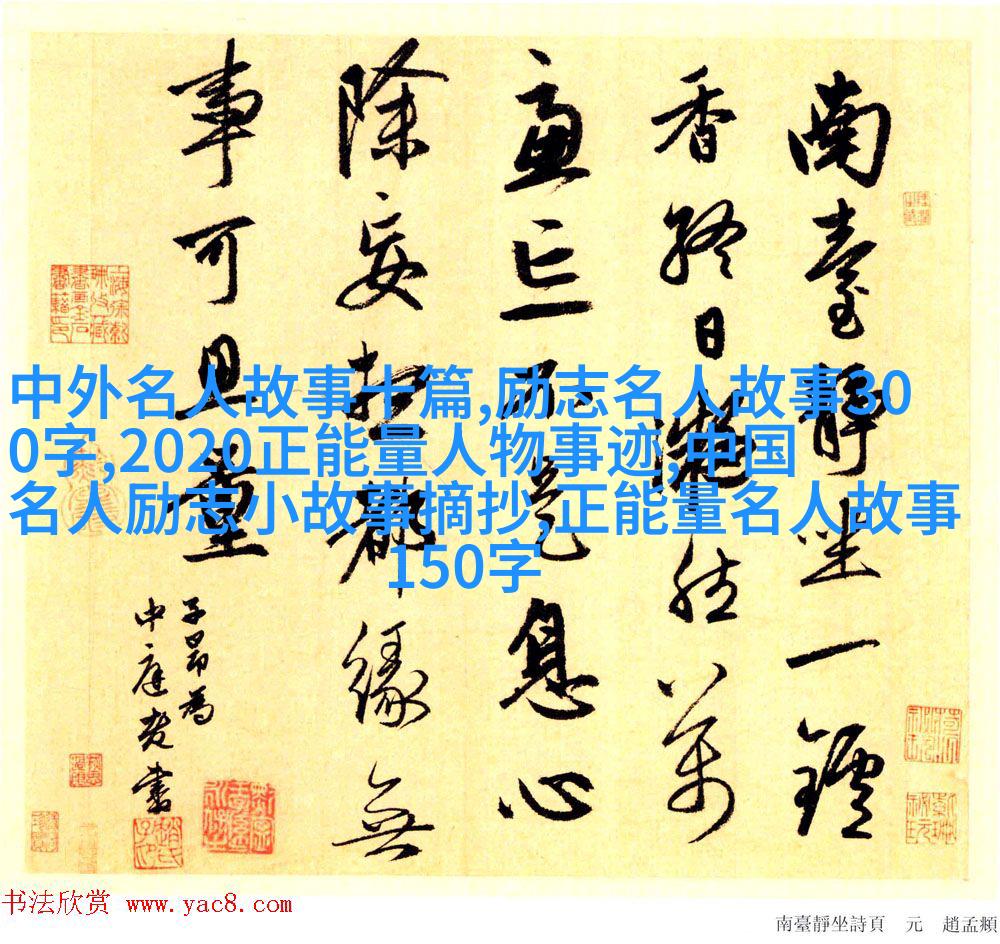 南臺靜坐一鑪
香終日凝然萬
慮亡不是息心
除妄想都緣無
事可思量
子昂為
中庭老書
中外名人故事十篇,励志名人故事30
0字,2020正能量人物事迹,中国
名人励志小故事摘抄,正能量名人故事
150字
书法欣赏 www.yac8.com
南臺靜坐詩頁 元 趙孟頫